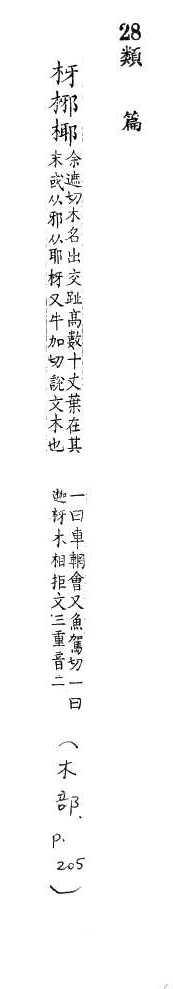 28 類 篇
枒㭨椰
余遮切木名出交趾高數十丈葉在其
末或从邪从耶枒又牛加切說文木也
一曰車輞會又魚駕切一曰
迦訝木相拒文三重音二
(木部. p. 205)